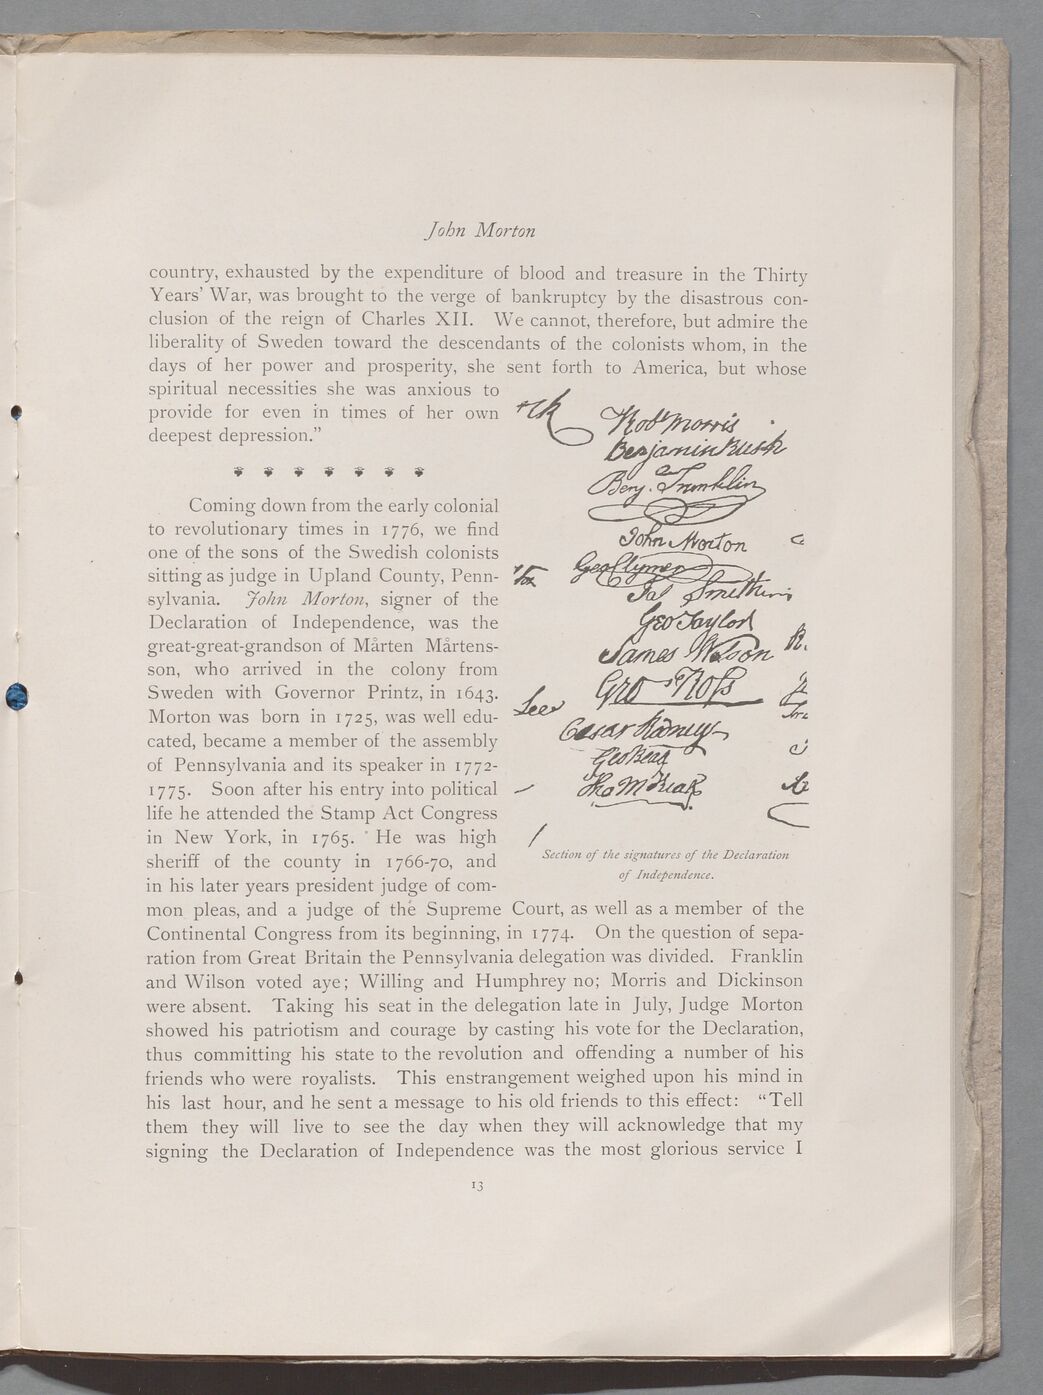 John Morton
country, exhausted by the expenditure of blood and treasure in the Thirty
Years' War, was brought to the verge of bankruptcy by the disastrous con-
clusion of the reign of Charles XII. We cannot, therefore, but admire the
liberality of Sweden toward the descendants of the colonists whom, in the
days of her power and prosperity, she sent forth to America, but whose
spiritual necessities she was anxious to
provide for even in times of her own
deepest depression.”
Coming down from the early colonial
to revolutionary times in 1776, we find
one of the sons of the Swedish colonists
sitting as judge in Upland County, Penn-
sylvania. John Morton, signer of the
Declaration of Independence, was the
great-great-grandson of Mårten Mårtens-
son, who arrived in the colony from
Sweden with Governor Printz, in 1643.
Morton was born in 1725, was well edu-
cated, became a member of the assembly
of Pennsylvania and its speaker in 1772-
1775. Soon after his entry into political
life he attended the Stamp Act Congress
in New York, in 1765. He was high
sheriff of the county in 1766-70, and
in his later years president judge of com-
Robt Morris
Benjamin Rush
Benj. Franklin
John Morton
Geo Clymer
Jas Smith
Geo Taylor
James Wilson
Geo Ross
Lee
Cæsar Rodney
Geo Read
Tho M:Kean
Section of the signatures of the Declaration
of Independence.
mon pleas, and a judge of the Supreme Court, as well as a member of the
Continental Congress from its beginning, in 1774. On the question of sepa-
ration from Great Britain the Pennsylvania delegation was divided. Franklin
and Wilson voted aye; Willing and Humphrey no; Morris and Dickinson
were absent. Taking his seat in the delegation late in July, Judge Morton
showed his patriotism and courage by casting his vote for the Declaration,
thus committing his state to the revolution and offending a number of his
friends who were royalists. This enstrangement weighed upon his mind in
his last hour, and he sent a message to his old friends to this effect: “Tell
them they will live to see the day when they will acknowledge that my
signing the Declaration of Independence was the most glorious service I
13